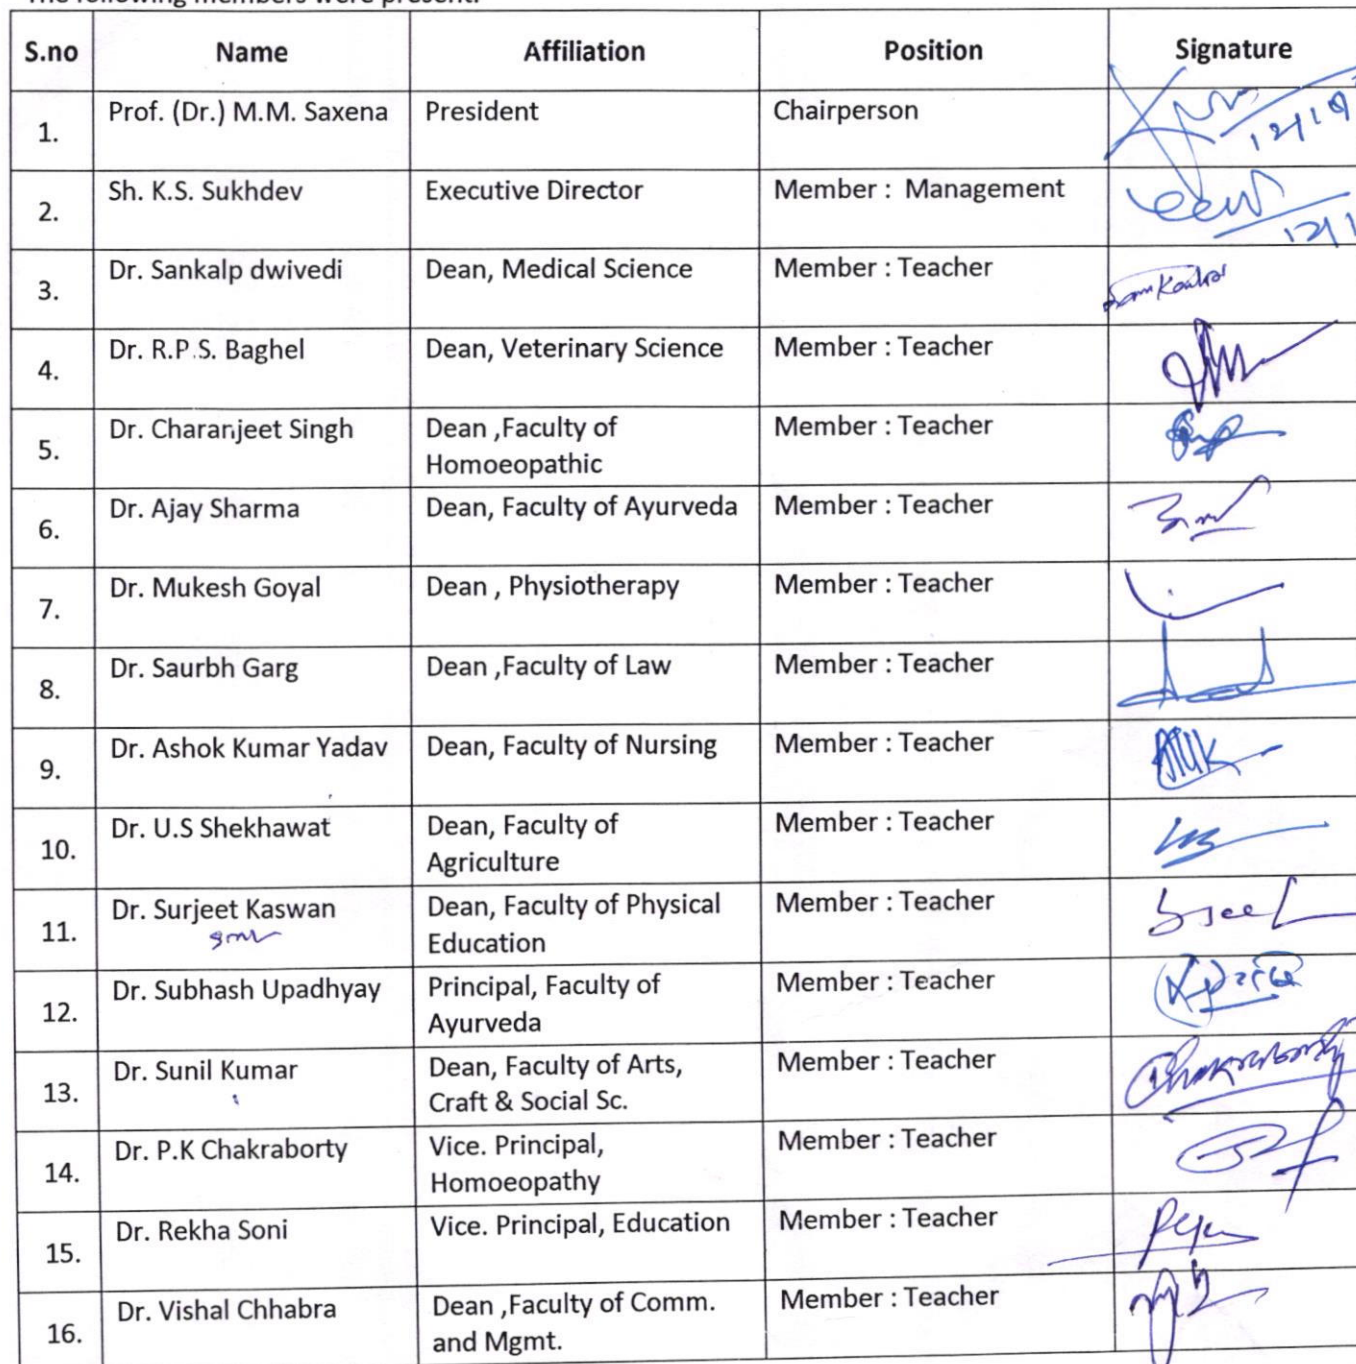 The following members were present:
S.no Name Affiliation Position Signature
1. Prof. (Dr.) M.M. Saxena President Chairperson
2. Sh. K.S. Sukhdev Executive Director Member : Management
3. Dr. Sankalp dwivedi Dean, Medical Science Member : Teacher
4. Dr. R.P.S. Baghel Dean, Veterinary Science Member : Teacher
5. Dr. Charanjeet Singh Dean ,Faculty of Member : Teacher
Homoeopathic
6. Dr. Ajay Sharma Dean, Faculty of Ayurveda Member : Teacher
7. Dr. Mukesh Goyal Dean , Physiotherapy Member : Teacher
8. Dr. Saurbh Garg Dean ,Faculty of Law Member : Teacher
9. Dr. Ashok Kumar Yadav Dean, Faculty of Nursing Member : Teacher
10. Dr. U.S Shekhawat Dean, Faculty of Member : Teacher
Agriculture
11. Dr. Surjeet Kaswan Dean, Faculty of Physical Member : Teacher
Education
12. Dr. Subhash Upadhyay Principal, Faculty of Member : Teacher
Ayurveda
13. Dr. Sunil Kumar Dean, Faculty of Arts, Member : Teacher
Craft & Social Sc.
14. Dr. P.K Chakraborty Vice. Principal, Member : Teacher
Homoeopathy
15. Dr. Rekha Soni Vice. Principal, Education Member : Teacher
16. Dr. Vishal Chhabra Dean ,Faculty of Comm. Member : Teacher
and Mgmt.